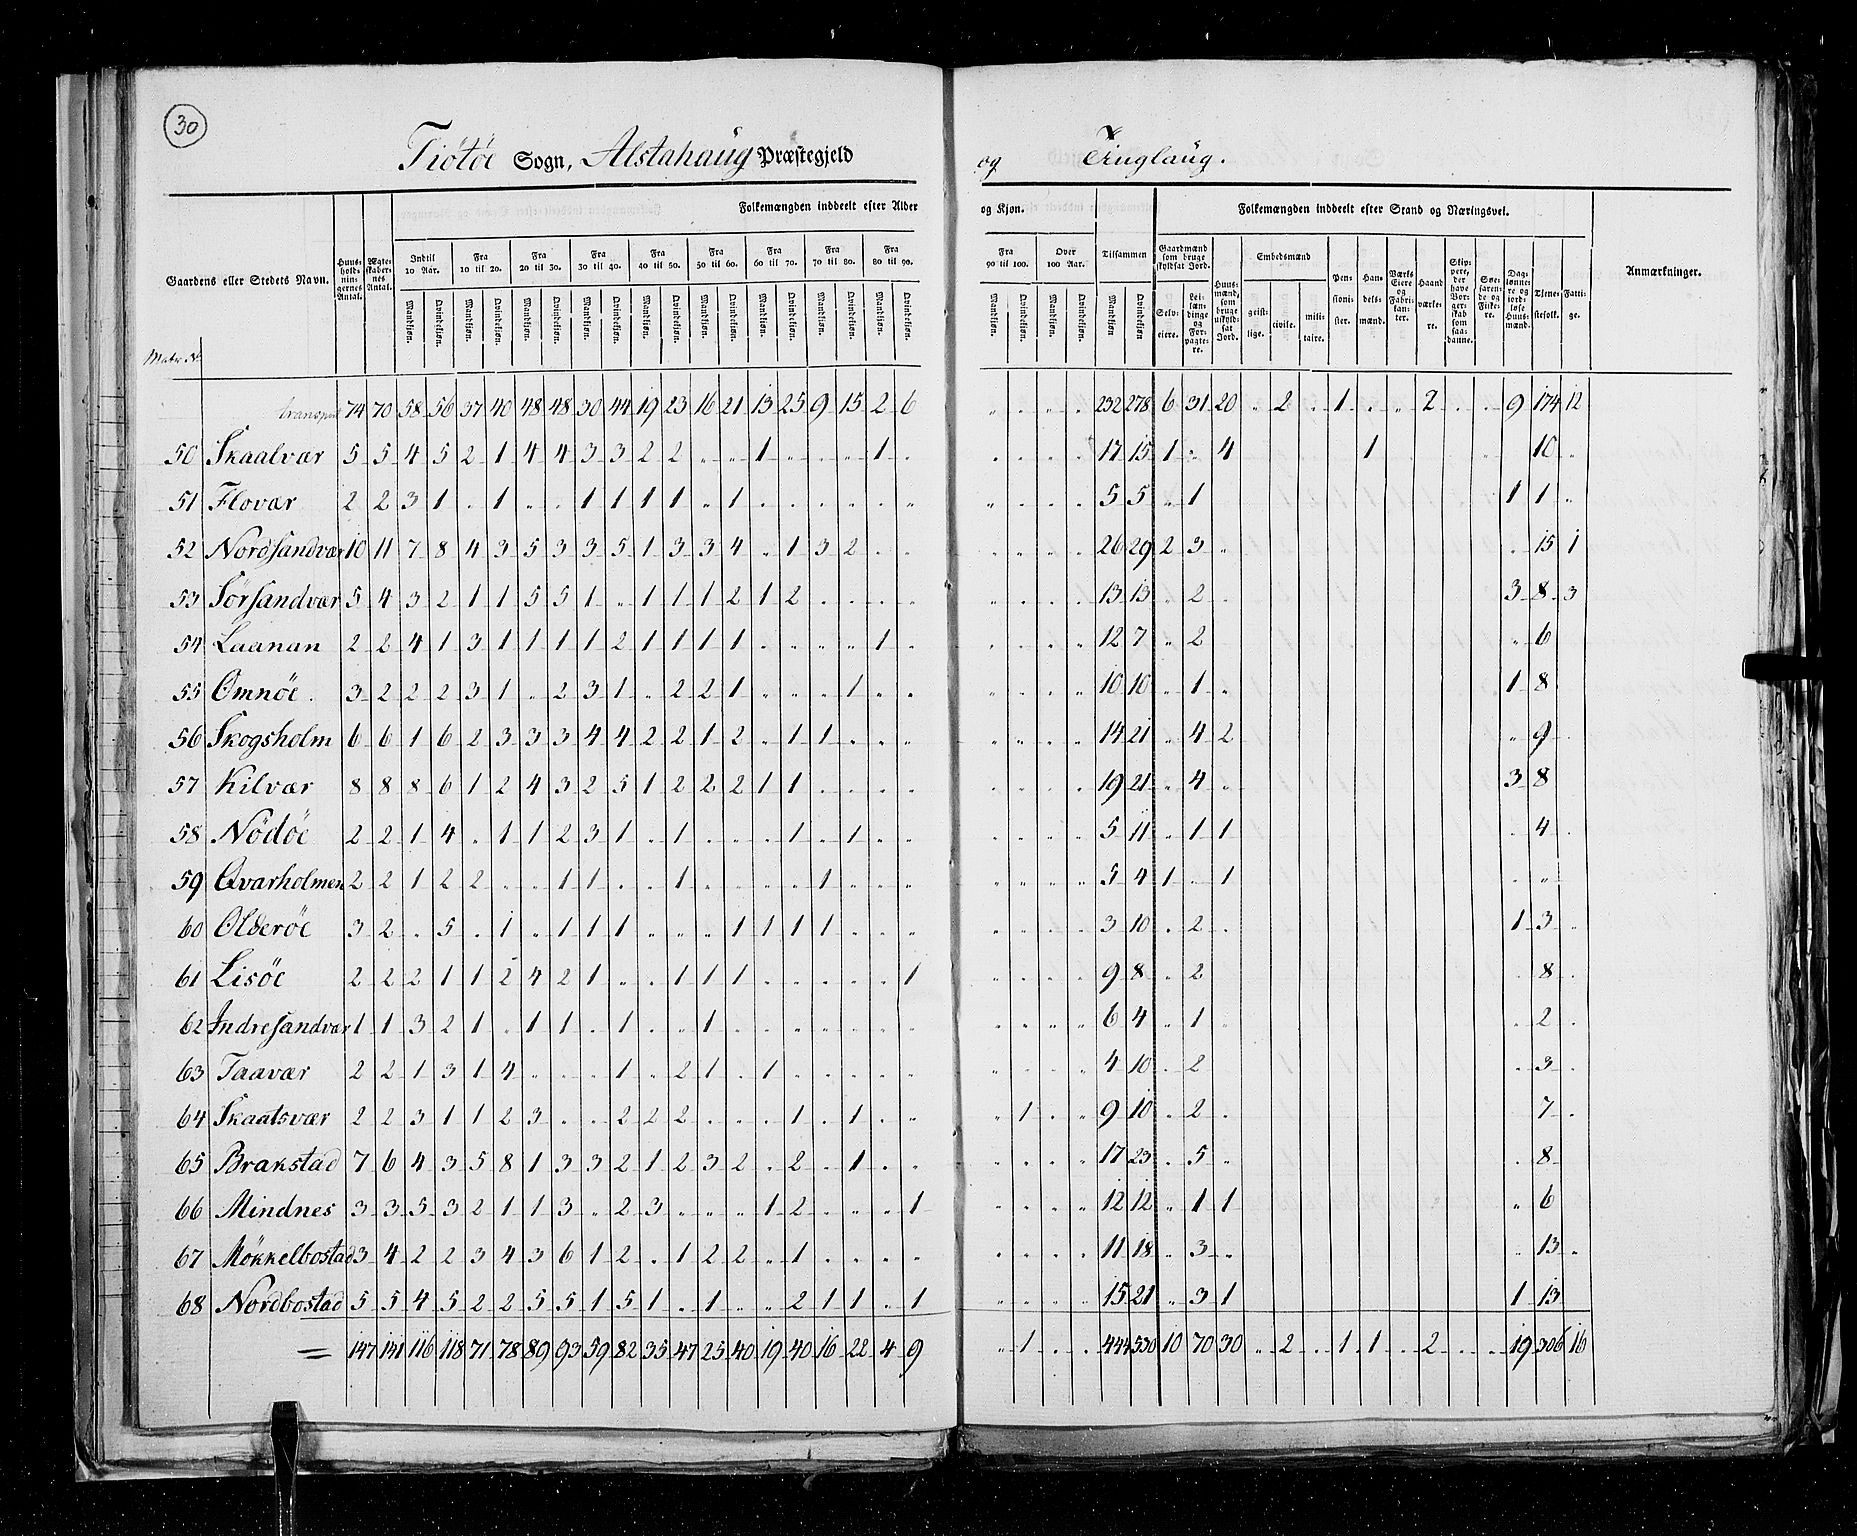 30
Tiötöe Sogn, Alstahaug Præstegjeld og Tinglaug.
Folkemængden inddeelt efter Alder og Kjøn. Folkemængden inddeelt efter Stand og Næringsvei.
Gaardens eller Stedets Navn. Huusholdningernes Antal. Ægteskabernes Antal. Indtil 10 Aar. Fra 10 til 20. Fra 20 til 30. Fra 30 til 40. Fra 40 til 50. Fra 50 til 60. Fra 60 til 70. Fra 70 til 80. Fra 80 til 90. Fra 90 til 100. Over 100 Aar. Tilsammen Gaardmænd som bruge skyldsat Jord. Huusmænd, som bruge uskyldsat Jord. Embedsmænd Pensionister. Handelsmænd. Værks Eiere og Fabrikanter. Haandværkere. Skippere, der have Borgerskab som saadanne. Søefarende og Fiskere. Daglønnere og jordløse Huusmænd. Tjenestefolk. Fattige. Anmærkninger.
Mandkjøn. Qvindekjøn. Mandkjøn. Qvindekjøn. Mandkjøn. Qvindekjøn. Mandkjøn. Qvindekjøn. Mandkjøn. Qvindekjøn. Mandkjøn. Qvindekjøn. Mandkjøn. Qvindekjøn. Mandkjøn. Qvindekjøn. Mandkjøn. Qvindekjøn. Mandkjøn. Qvindekjøn. Mandkjøn. Qvindekjøn. Mandkjøn Qvindekjøn Selveiere. Leilændinge og Forpagtere. geistlige. civile. militaire.
Matr. Nr.
transport 74 70 58 56 37 40 48 48 30 44 19 23 16 21 13 25 9 15 2 6 " . . . 232 278 6 31 20 " 2 . 1 . . 2 . . 9 174 12
50 Skaalvær 5 5 4 5 2 1 4 4 3 3 2 2 . . 1 . . . 1 . . . . . 17 15 1 " 4 1 10 "
51 Flovær 2 2 3 1 . 1 . . 1 1 1 1 . 1 . . . . . " " . . . 5 5 " 1 1 1 "
52 Nordsandvær 10 11 7 8 4 3 5 3 3 5 1 3 3 4 . 1 3 2 . . . . . . 26 29 2 3 " . 15 1
53 Sørsandvær 5 4 3 2 1 1 5 5 1 . 1 1 1 2 1 2 . . . . . . . . 13 13 " 2 . 3 8 3
54 Laanan 2 2 4 1 3 1 1 1 1 2 1 1 1 1 . . . . 1 . . . . . 12 7 " 2 " 6
55 Omnöe. 3 2 2 2 3 1 . 2 3 1 . 2 2 1 . . . 1 . . . . . . 10 10 . 1 " 1 8
56 Skogsholm 6 6 1 6 2 3 3 3 4 4 2 2 1 2 . 1 1 . . . . . . . 14 21 " 4 2 " 9 .
57 Kilvær 8 8 8 6 1 2 4 3 2 5 1 2 2 2 1 1 . . . . . . . . 19 21 . 4 " 3 8
58 Nödöe 2 2 1 4 . 1 1 2 3 1 . 1 . . . 1 . 1 . . . . . . 5 11 . 1 1 . 4 .
59 Qvarholmen 2 2 1 2 2 . . 1 1 . . 1 . . . . 1 . . . . . . . 5 4 1 . 1 . "
60 Olderöe 3 2 . 5 . 1 . 1 1 1 . . . 1 1 1 1 . . . . . . . 3 10 . 2 . 1 3 .
61 Lisöe 2 2 2 1 1 2 4 2 1 . . 1 1 1 . . . . . 1 . . . . 9 8 " 2 . 8 .
62 Indresandvær 1 1 3 2 1 . 1 1 . 1 . . 1 . . . . . . . . . . . 6 4 . 1 . . 2 .
63 Taavær 2 2 1 3 1 4 . . . 1 . 2 1 . 1 . . . . . . . . . 4 10 . 2 . 3 .
64 Skaatsvær 2 2 3 1 1 2 3 . . 2 2 2 . . . 1 . 1 . . " 1 . . 9 10 . 2 . 7 .
65 Brakstad 7 6 4 3 5 8 1 3 3 2 1 2 3 2 . 2 . 1 . . . . . . 17 23 . 5 " . 8
66 Mindnes 3 3 5 3 2 1 1 3 . 2 3 . . . 1 2 . . . 1 . . . . 12 12 . 1 1 " 6
67 Mökkelbostad 3 4 2 2 3 4 3 6 1 2 . 1 2 2 . 1 . . . . . . . . 11 18 . 3 " " 13 "
68 Nordbostad 5 5 4 5 2 2 5 5 1 5 1 . 1 . . 2 1 1 . 1 . . . . 15 21 . 3 1 1 13
= 147 141 116 118 71 78 89 93 59 82 35 47 25 40 19 40 16 22 4 9 " 1 . . 444 530 10 70 30 " 2 . 1 1 . 2 . . 19 306 16